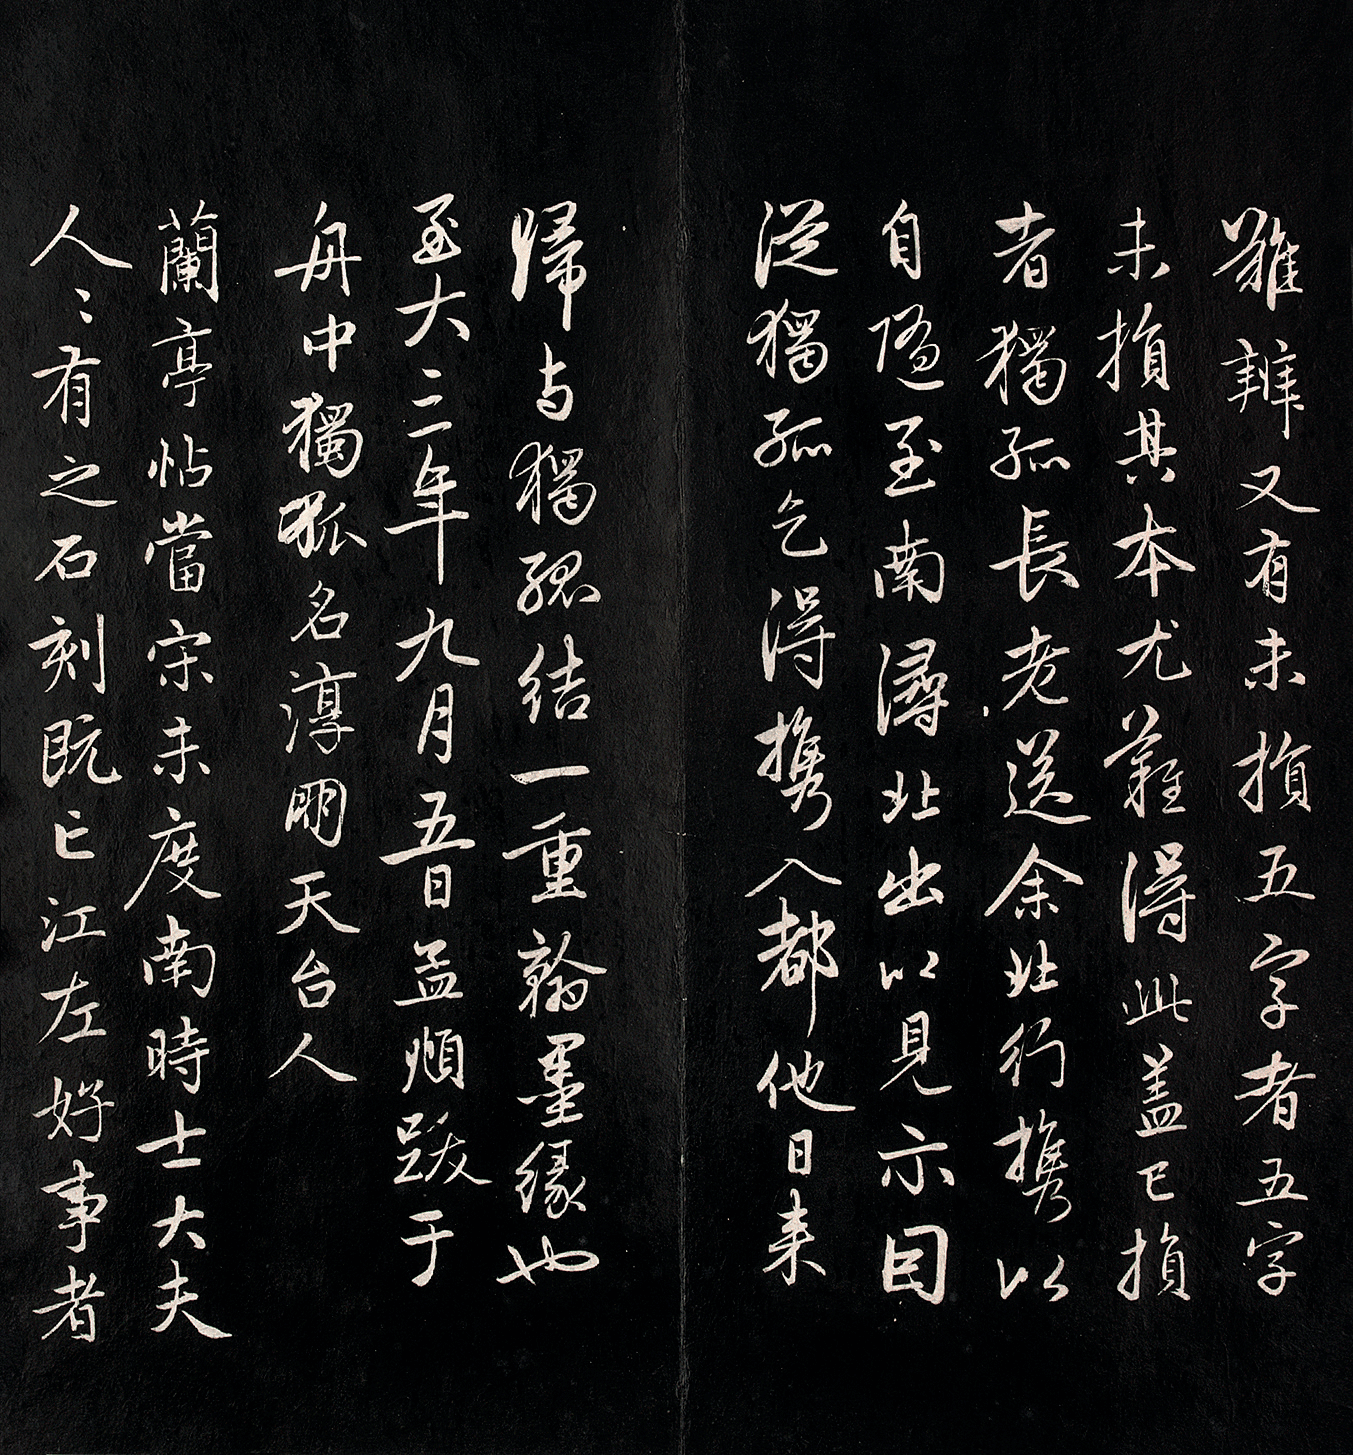 難辨又有未損五字者五字
未損其本尤難得此盖已損
者獨孤長老送余北行携以
自隨至南潯北出以見示因
從獨孤乞得携入都他日来
歸与獨孤結一重翰墨緣也
至大三年九月五日孟頫跋于
舟中獨孤名淳朋天台人
蘭亭帖當宋未度南時士大夫
人〻有之石刻既亡江左好事者